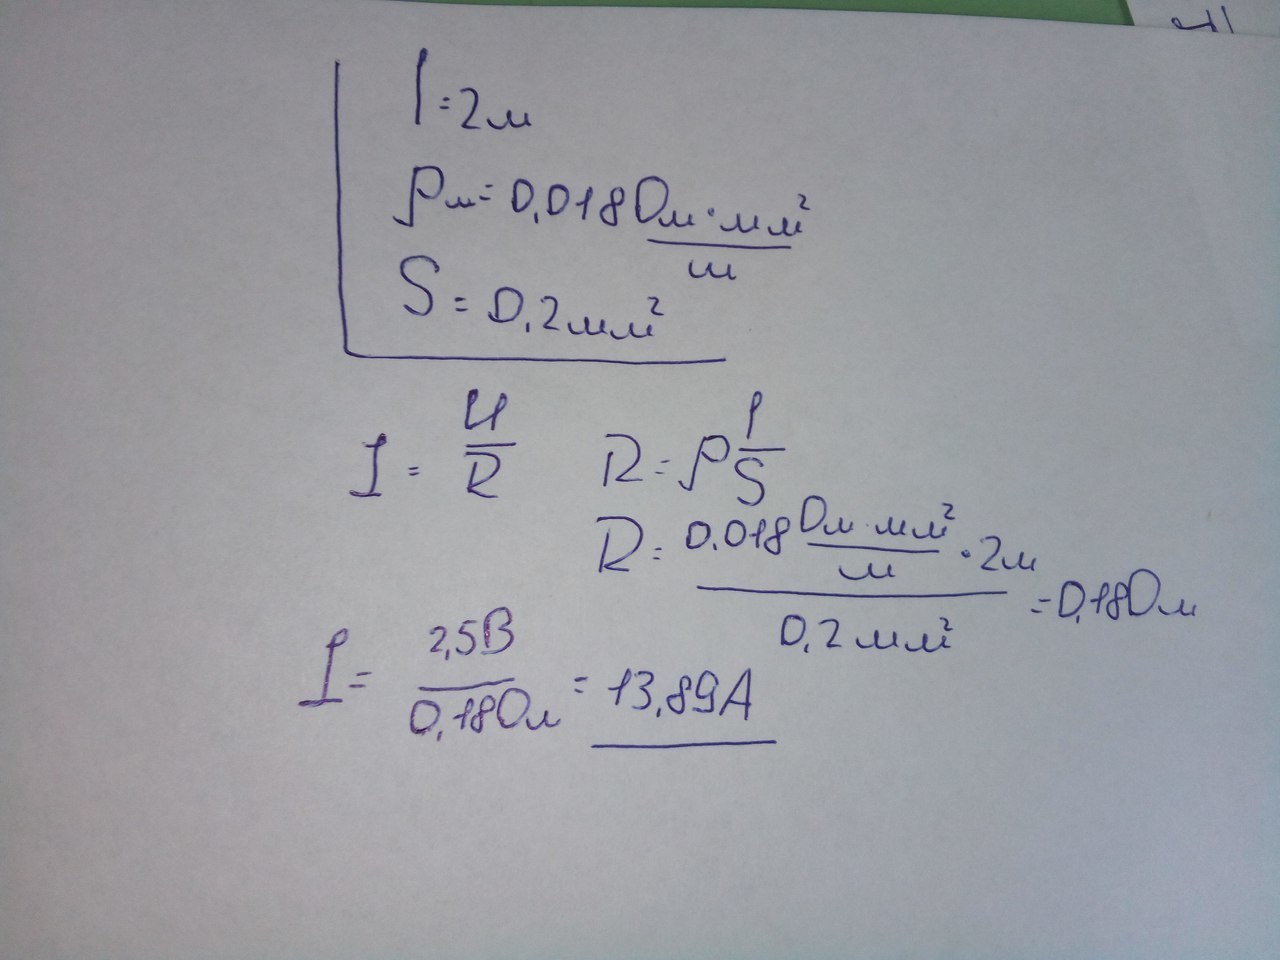 l = 2м
ρм = 0,018 Ом·мм²/м
S = 0,2мм²
I = U/R   R = ρ l/S
R = 0.018 Ом·мм²/м · 2м / 0,2мм² = 0,18Ом
I = 2,5В / 0,18Ом = 13,89А